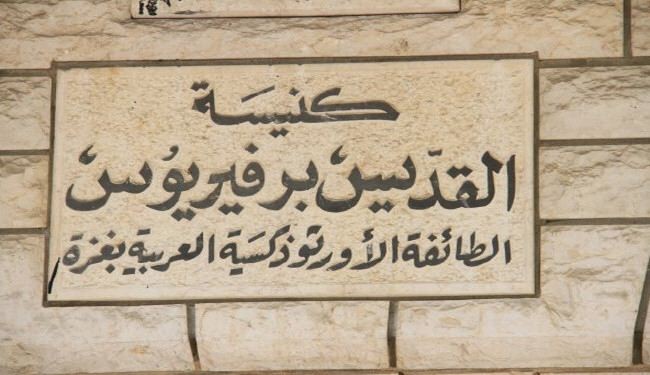 كنيسَة
القدّيس برفيريوُس
الطائفة الأورثوذكسَية العربية بغزة